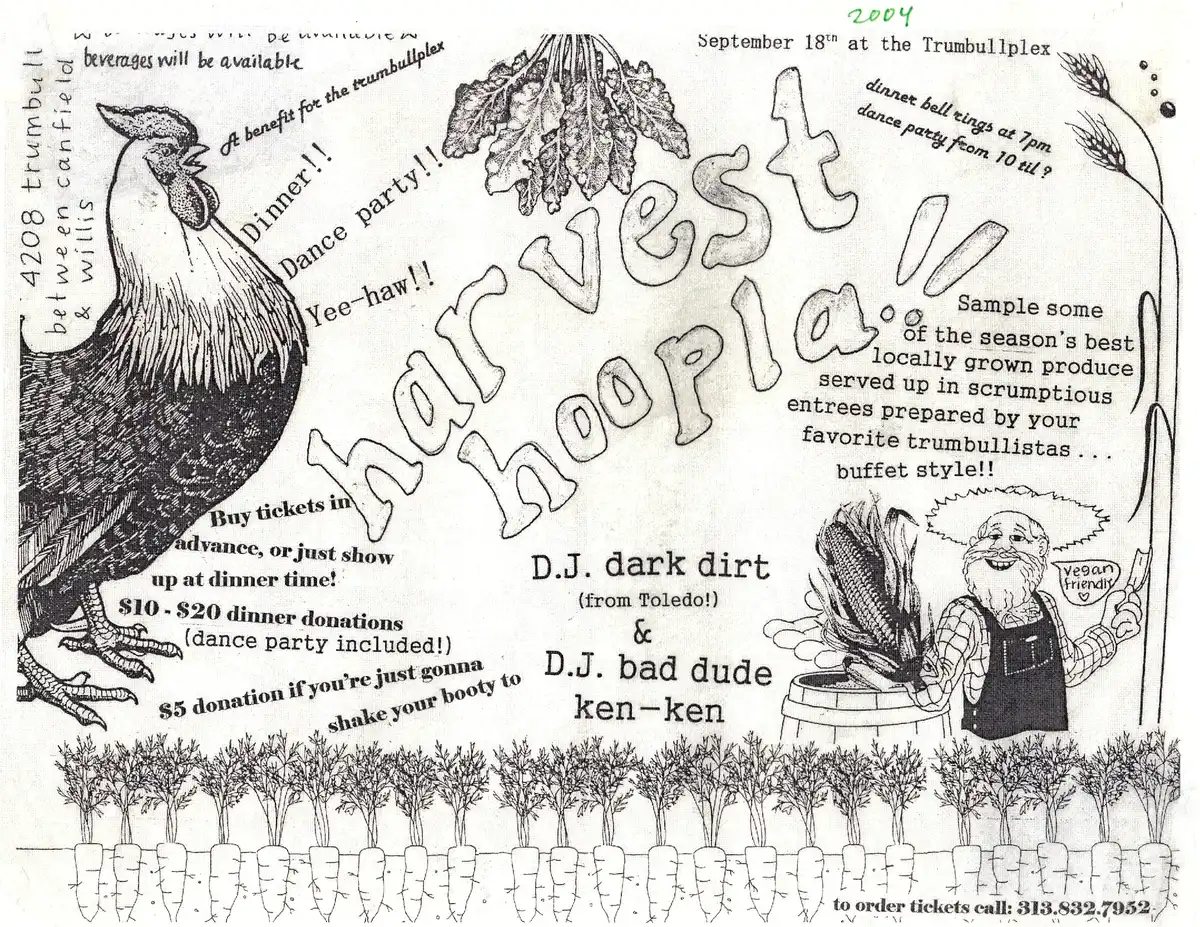 2004
beverages will be available
beverages will be available
September 18th at the Trumbullplex
4208 trumbull
between canfield
& willis
A benefit for the trumbullplex
dinner bell rings at 7pm
dance party from 10 til ?
Dinner!!
Dance party!!
Yee-haw!!
harvest
hoopla!!
Sample some
of the season's best
locally grown produce
served up in scrumptious
entrees prepared by your
favorite trumbullistas . . .
buffet style!!
Buy tickets in
advance, or just show
up at dinner time!
$10 - $20 dinner donations
(dance party included!)
$5 donation if you're just gonna
shake your booty to
D.J. dark dirt
(from Toledo!)
&
D.J. bad dude
ken-ken
vegan
friendly
to order tickets call: 313.832.7952